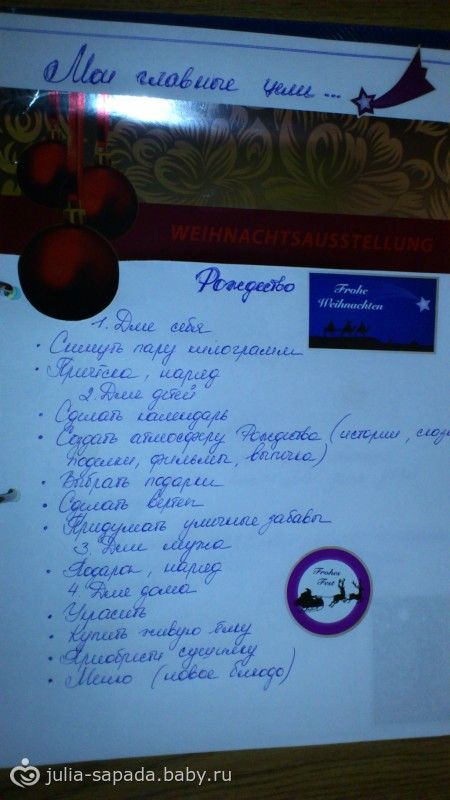 Мои главные цели...
WEIHNACHTSAUSSTELLUNG
Рождество
Frohe
Weihnachten
1. Для себя
• Скинуть пару килограмм
• Причёска, наряд
2. Для детей
• Сделать календарь
• Создать атмосферу Рождества (истории,
поделки, фильмы, выпечка)
• Выбрать подарки
• Сделать вертеп
• Придумать уличные забавы
3. Для мужа
• Подарок, наряд
4. Для дома
• Украсить
• Купить живую ёлку
• Приобрести сушилку
• Меню (новое блюдо)
Frohes
Fest
julia-sapada.baby.ru